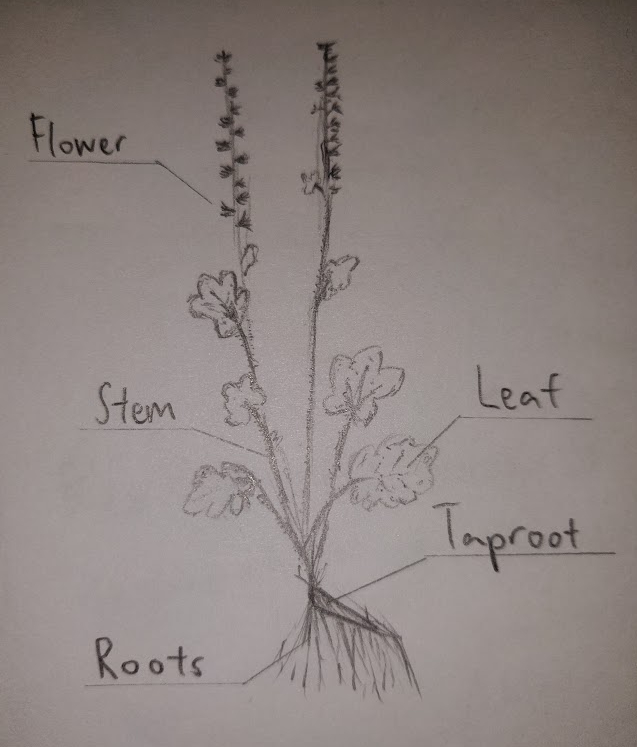 Flower
Stem
Leaf
Taproot
Roots